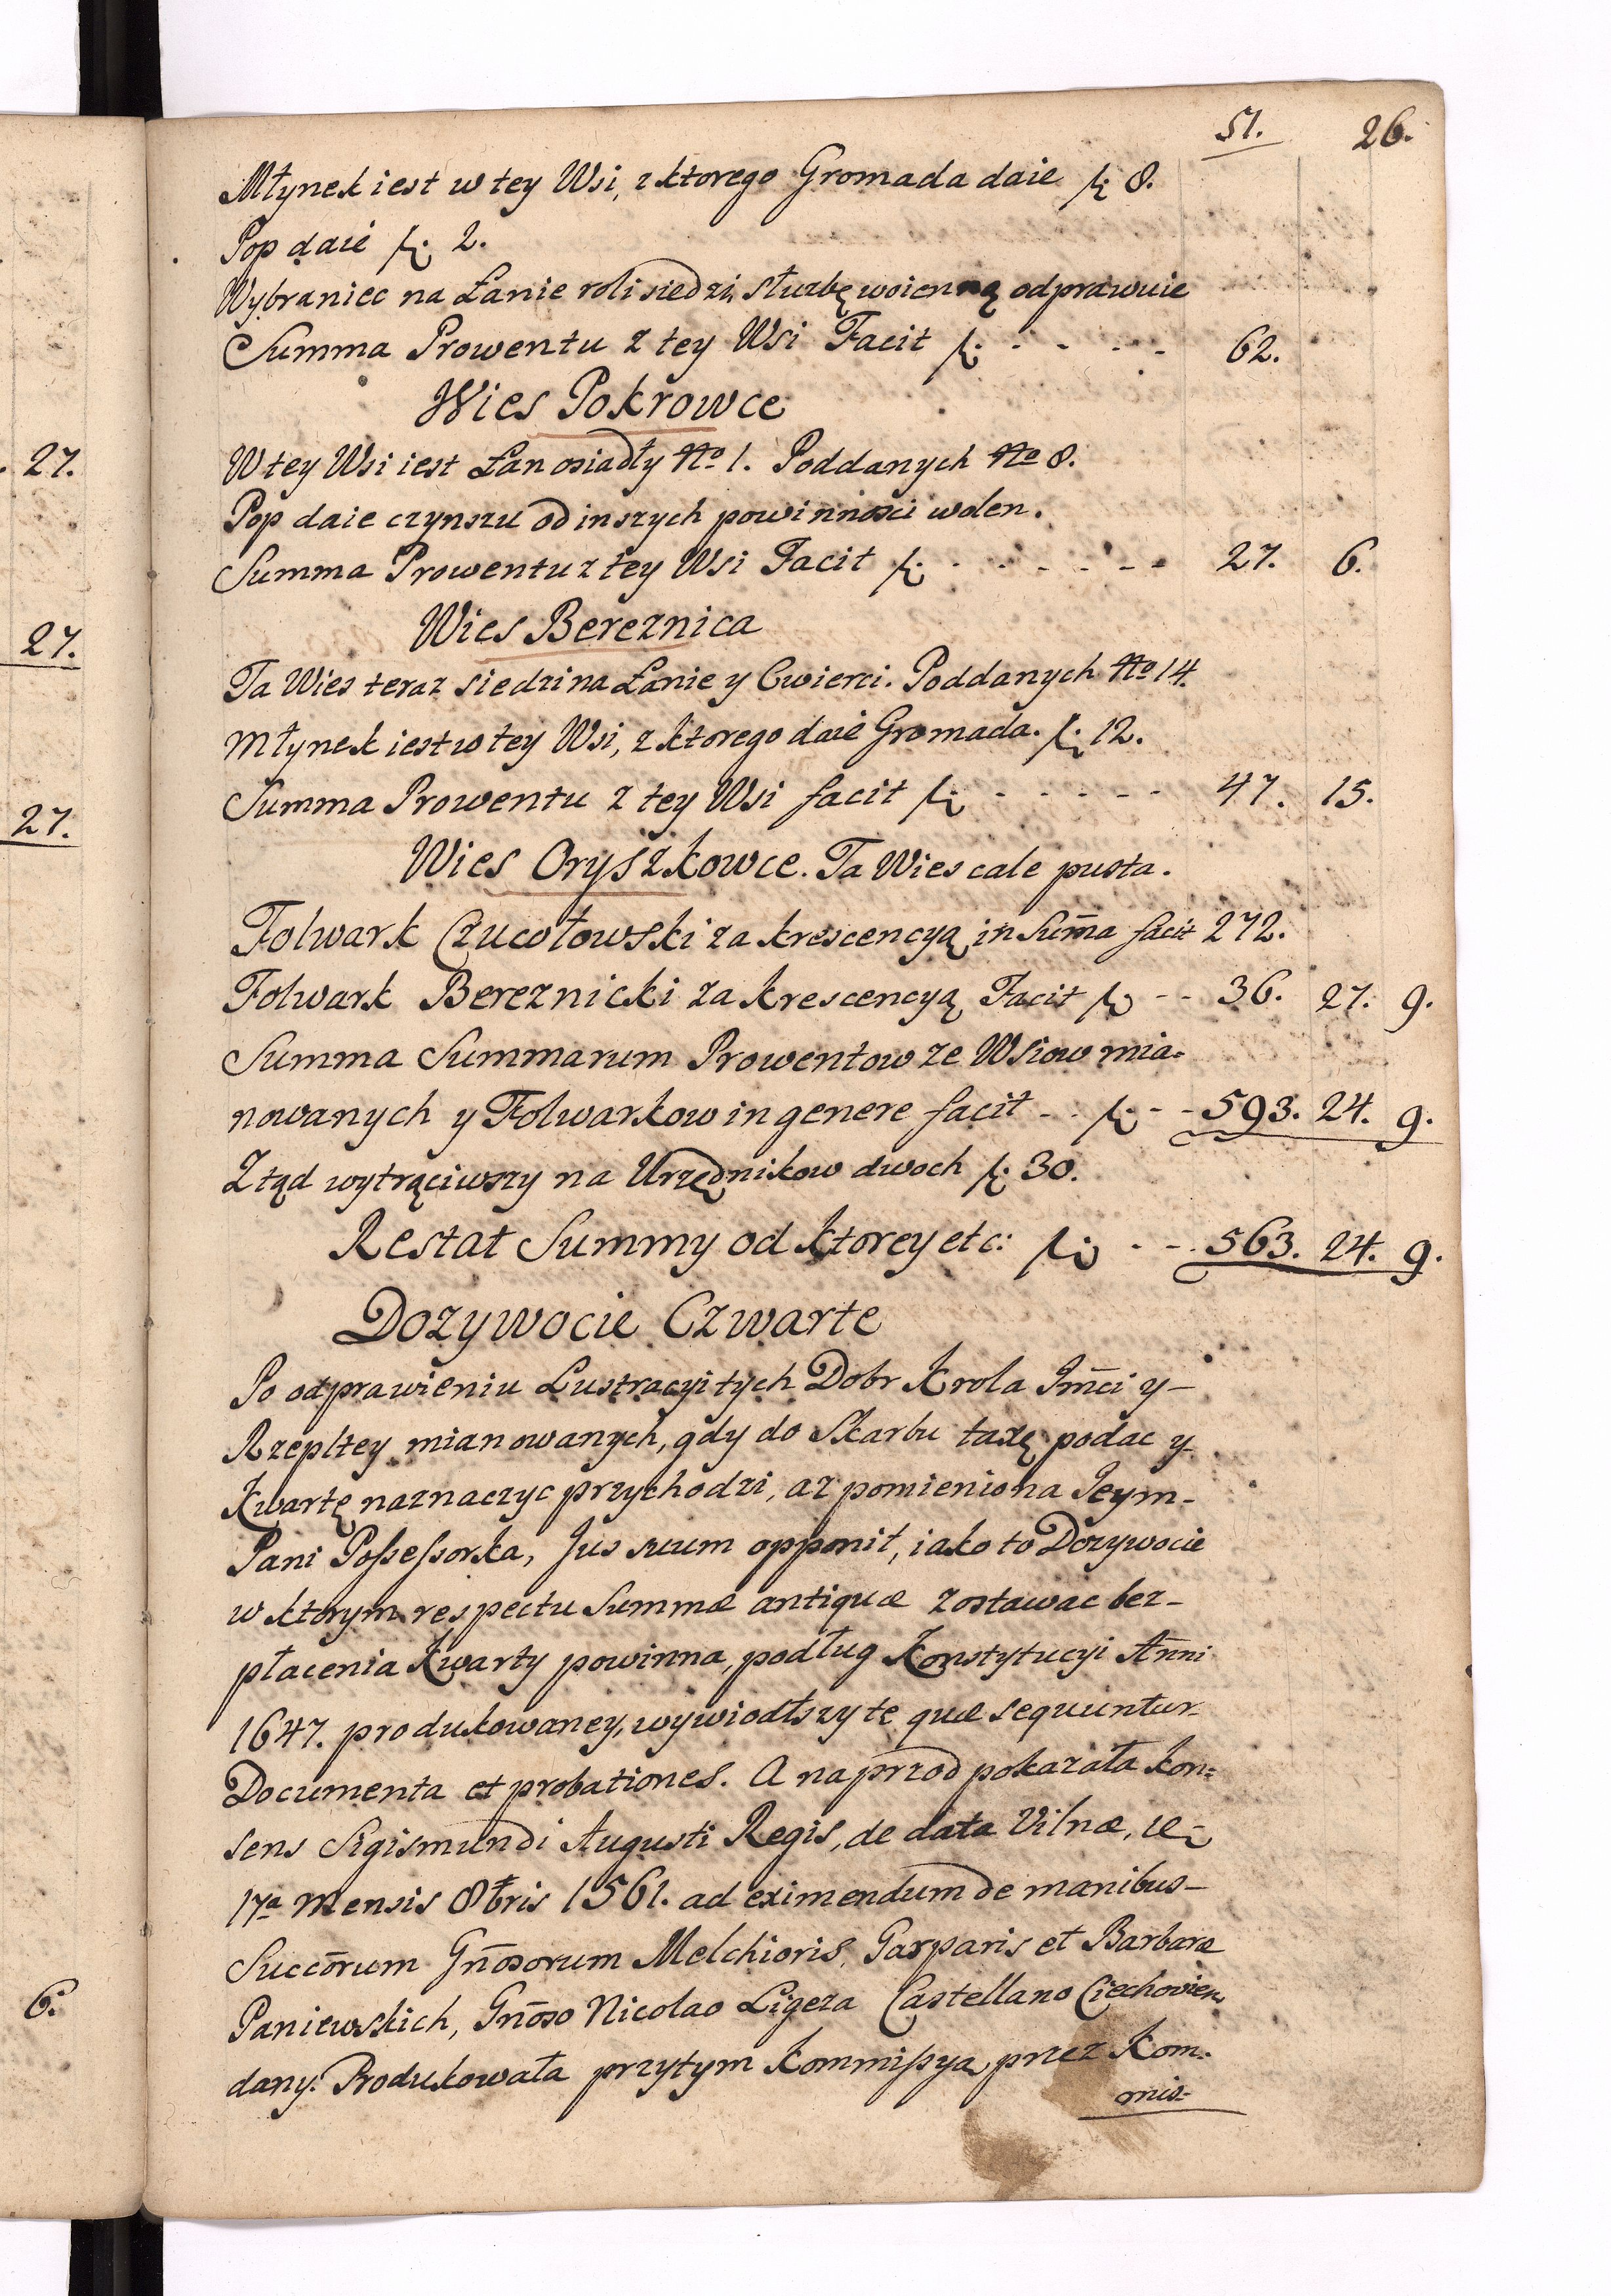 51. 26.
Młynek iest w tey Wsi, z ktorego Gromada daie fl: 8.
Pop daie fl: 2.
Wybraniec na Łanie roli siedzi, służbę woienną odprawuie
Summa Prowentu z tey Wsi Facit fl: - - - - - 62.
Wies Pokrowce
27.
W tey Wsi iest Łan osiadły No 1. Poddanych No 8.
Pop daie czynszu od inszych powinności wolen.
Summa Prowentu z tey Wsi Facit fl: - - - - - - - 27. 6.
Wies Bereznica
27.
Ta Wies teraz siedzi na Łanie y Cwierci. Poddanych No 14.
Młynek iest w tey Wsi, z ktorego daie Gromada. fl: 12.
Summa Prowentu z tey Wsi facit fl: - - - - - 47. 15.
27.
Wies Oryszkowce. Ta Wies cale pusta.
Folwark Czucołowski za krescencyą in Sum̄a facit 272.
Folwark Bereznicki za krescencyą Facit fl: - - 36. 27. 9.
Summa Summarum Prowentow ze Wsiow mia-
nowanych y Folwarkow in genere facit - - fl: - - 593. 24. 9.
Ztąd wytrąciwszy na Urzędnikow dwoch fl: 30.
Restat Summy od ktorey etc: fl: - - - 563. 24. 9.
Dozywocie Czwarte
Po odprawieniu Lustracyi tych Dobr Krola Jm̄ci y -
Rzepltey mianowanych, gdy do Skarbu taxę podac y
Kwartę naznaczyc przychodzi, az pomieniona Jeym-
Pani Possessorka, Jus suum opponit, iako to Dozywocie
w ktorym respectu Summæ antiquæ zostawac bez-
płacenia Kwarty powinna, podług Konstytucyi Anni
1647. produkowaney, wywiodłszy te quæ sequuntur
Documenta et probationes. A naprzod pokazała kon=
sens Sigismundi Augusti Regis, de data Vilnæ,
17a Mensis 8bris 1561. ad eximendum de manibus -
Succōrum Gn̄osorum Melchioris, Gasparis et Barbaræ
Paniewskich, Gn̄oso Nicolao Ligeza Castellano Ciechovien
6.
dany. Produkowała przytym Kommissya, przez Kom-
mis-